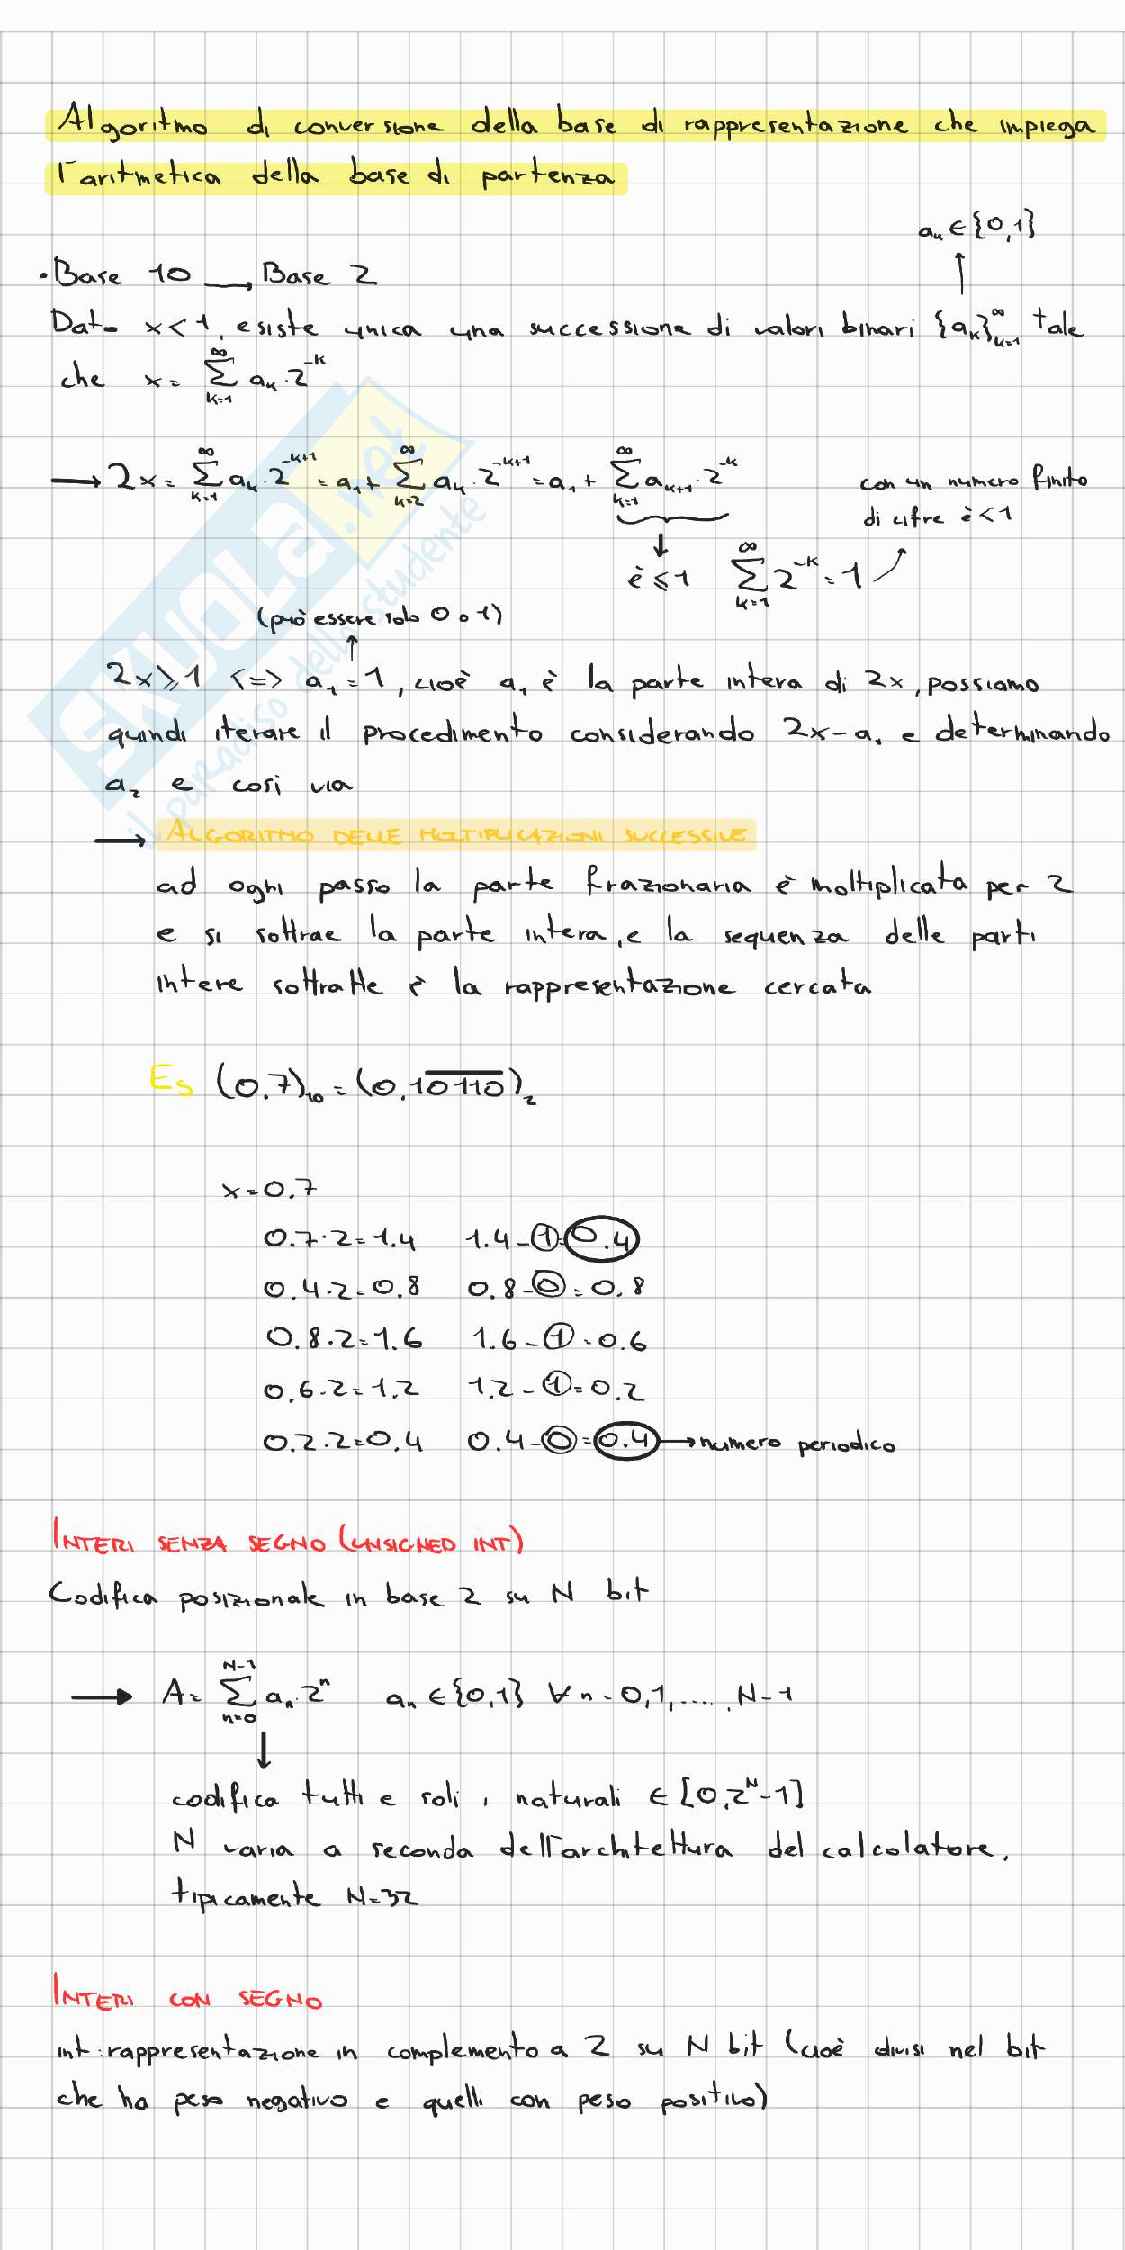 Algoritmo di conversione della base di rappresentazione che impiega
l'aritmetica della base di partenza
aₖ ∈ {0,1}
• Base 10 → Base 2
Dato x < 1, esiste unica una successione di valori binari {aₖ}ₖ₌₁^∞ tale
che x = ∑ₖ₌₁^∞ aₖ · 2^(-k)
→ 2x = ∑ₖ₌₁^∞ aₖ · 2^(-k+1) = a₁ + ∑ₖ₌₂^∞ aₖ · 2^(-k+1) = a₁ + ∑ₖ₌₁^∞ aₖ₊₁ · 2^(-k)
con un numero finito
di cifre è < 1
è ⩽ 1 ∑ₖ₌₁^∞ 2^(-k) = 1
(può essere solo 0 o 1)
2x ⩾ 1 <=> a₁ = 1, cioè a₁ è la parte intera di 2x, possiamo
quindi iterare il procedimento considerando 2x - a₁ e determinando
a₂ e così via
→ ALGORITMO DELLE MOLTIPLICAZIONI SUCCESSIVE
ad ogni passo la parte frazionaria è moltiplicata per 2
e si sottrae la parte intera, e la sequenza delle parti
intere sottratte è la rappresentazione cercata
Es (0,7)₁₀ = (0,10̅1̅1̅0̅)₂
x = 0.7
0.7 · 2 = 1.4 1.4 - 1 = 0.4
0.4 · 2 = 0.8 0.8 - 0 = 0.8
0.8 · 2 = 1.6 1.6 - 1 = 0.6
0.6 · 2 = 1.2 1.2 - 1 = 0.2
0.2 · 2 = 0.4 0.4 - 0 = 0.4 → numero periodico
INTERI SENZA SEGNO (UNSIGNED INT)
Codifica posizionale in base 2 su N bit
→ A = ∑ₙ₌₀^(N-1) aₙ · 2ⁿ aₙ ∈ {0,1} ∀ n = 0,1,...., N-1
codifica tutti e soli i naturali ∈ [0, 2^N - 1]
N varia a seconda dell'architettura del calcolatore,
tipicamente N = 32
INTERI CON SEGNO
int: rappresentazione in complemento a 2 su N bit (cioè divisi nel bit
che ha peso negativo e quelli con peso positivo)
SKUOLA.net
il paradiso dello studente